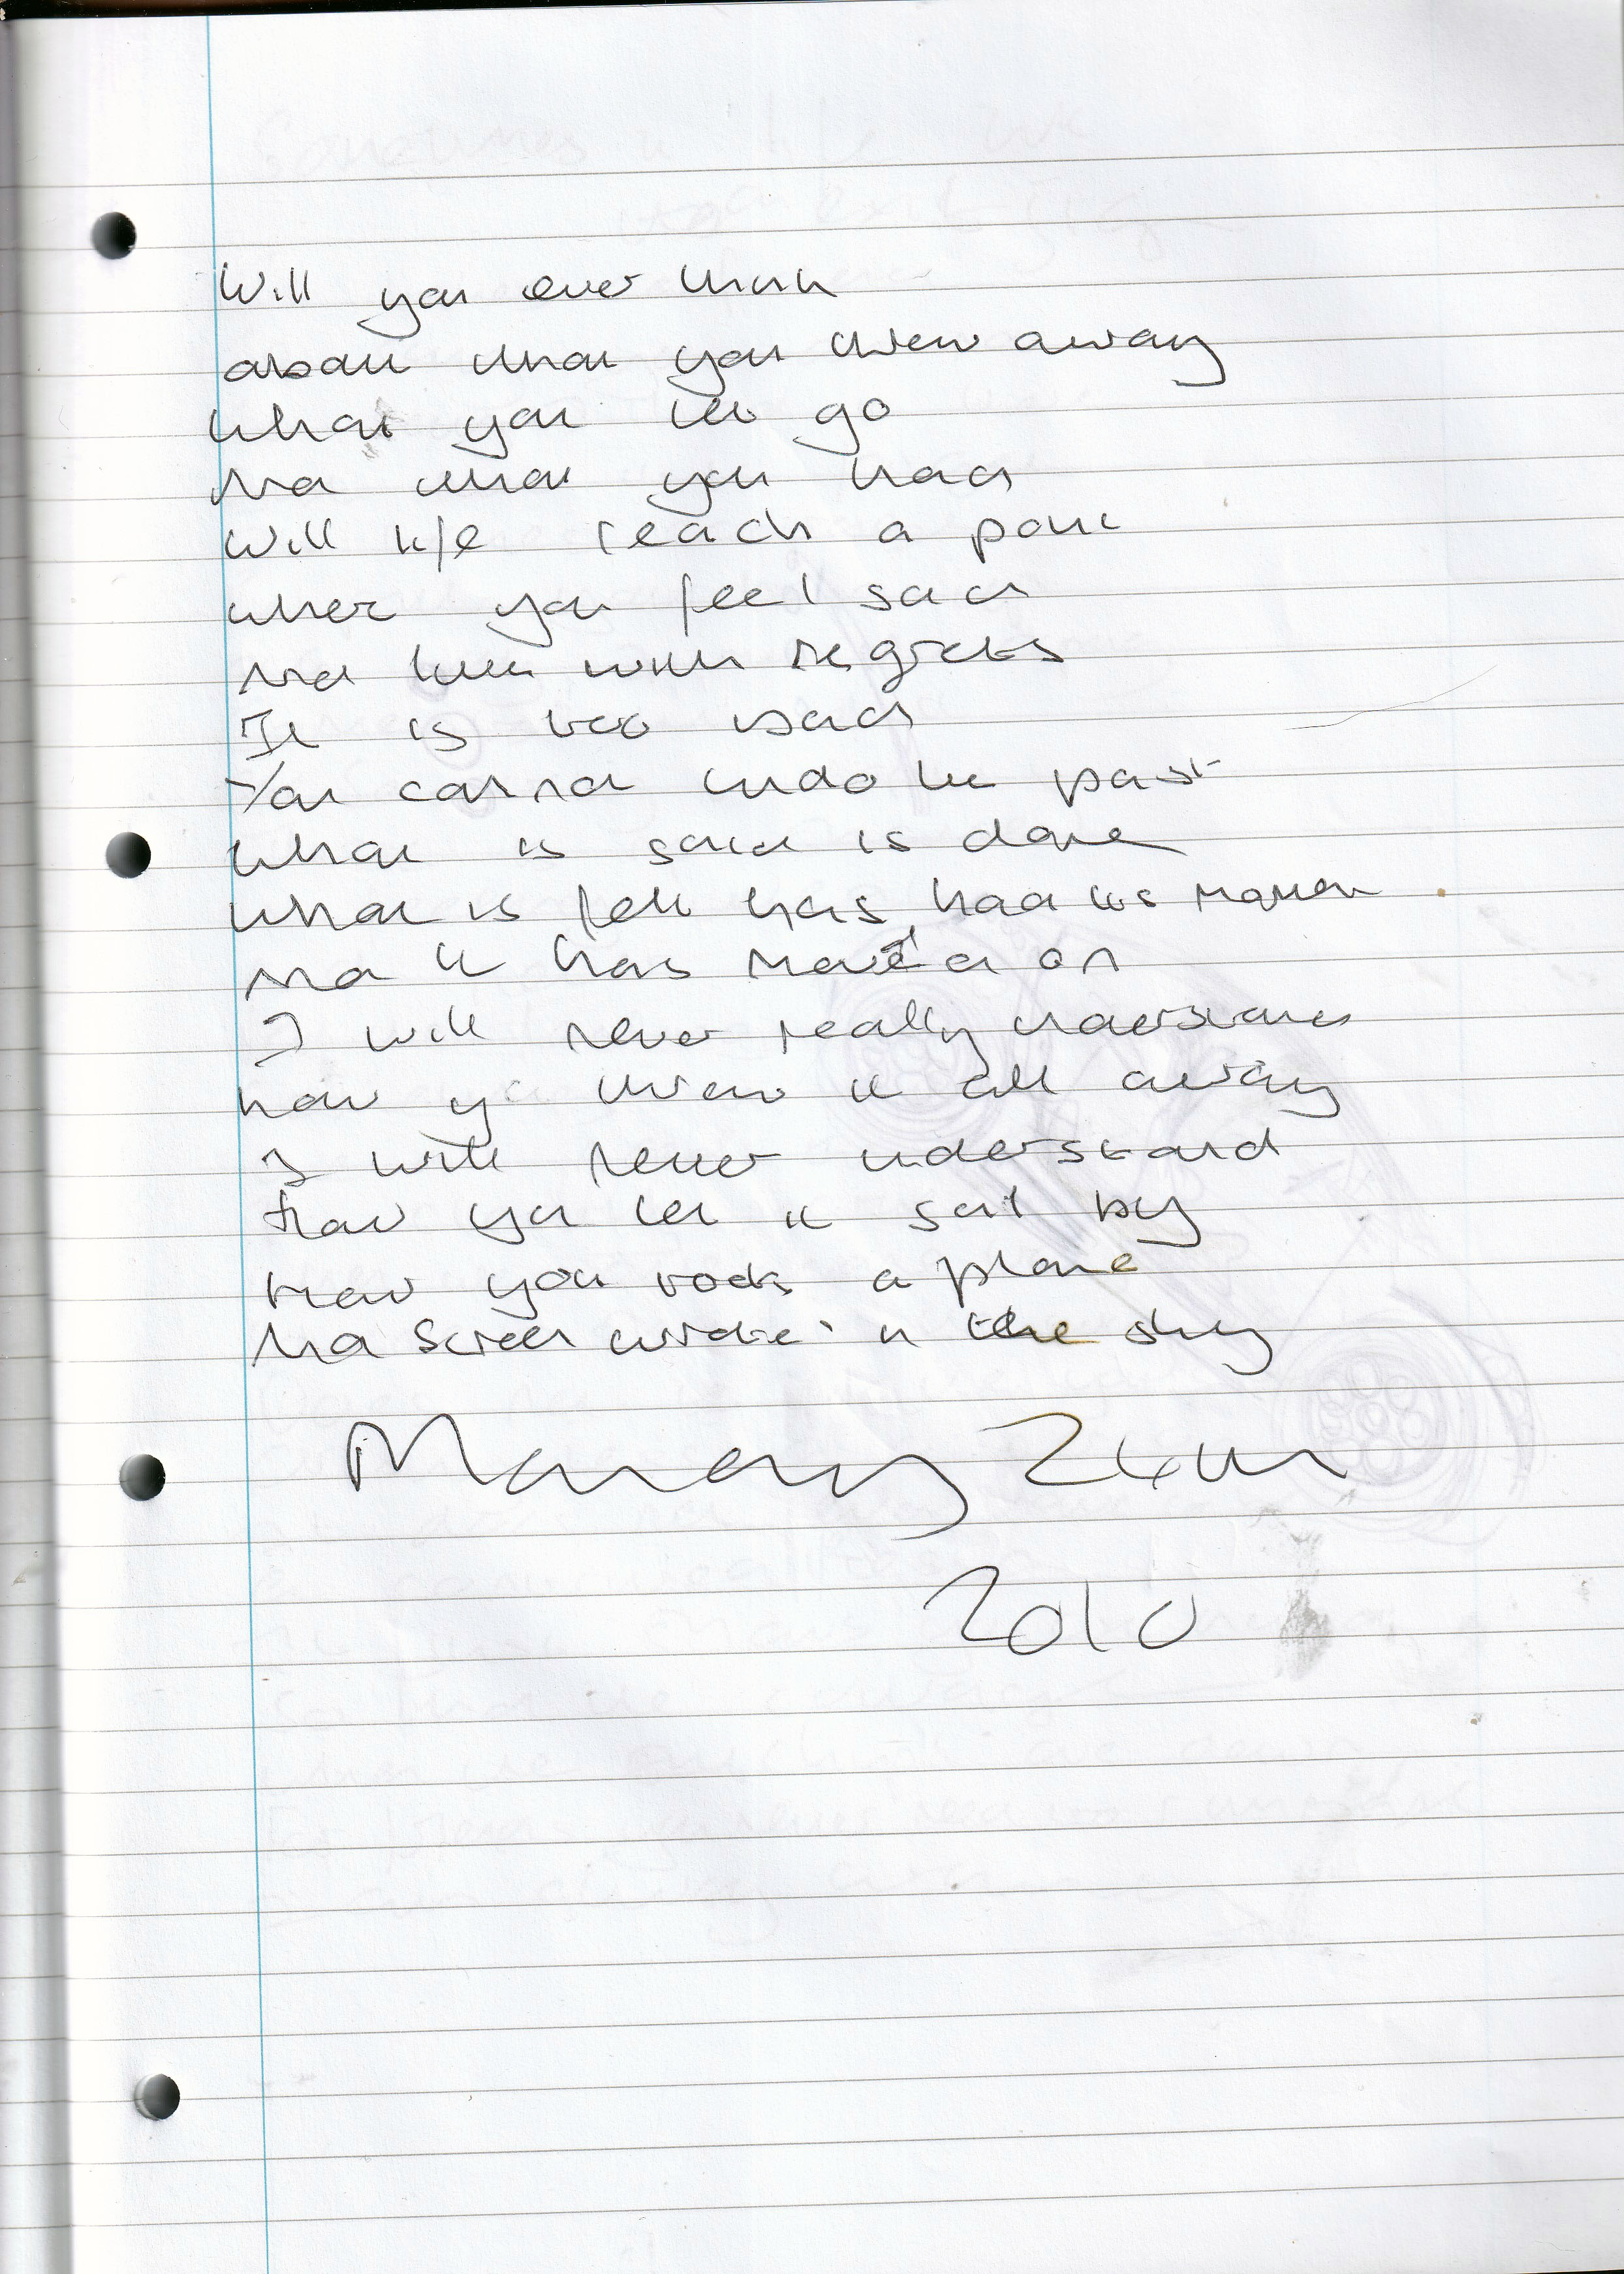 Will you ever think
about what you threw away
what you let go
And what you had
Will life reach a point
when you feel sad
And live with regrets
It is too bad
You cannot undo the past
what is said is done
what is felt has had its moment
And it has moved on
I will never really understand
how you threw it all away
I will never understand
how you let it sail by
How you took a plane
And screen write in the sky
Monday 24th
2010